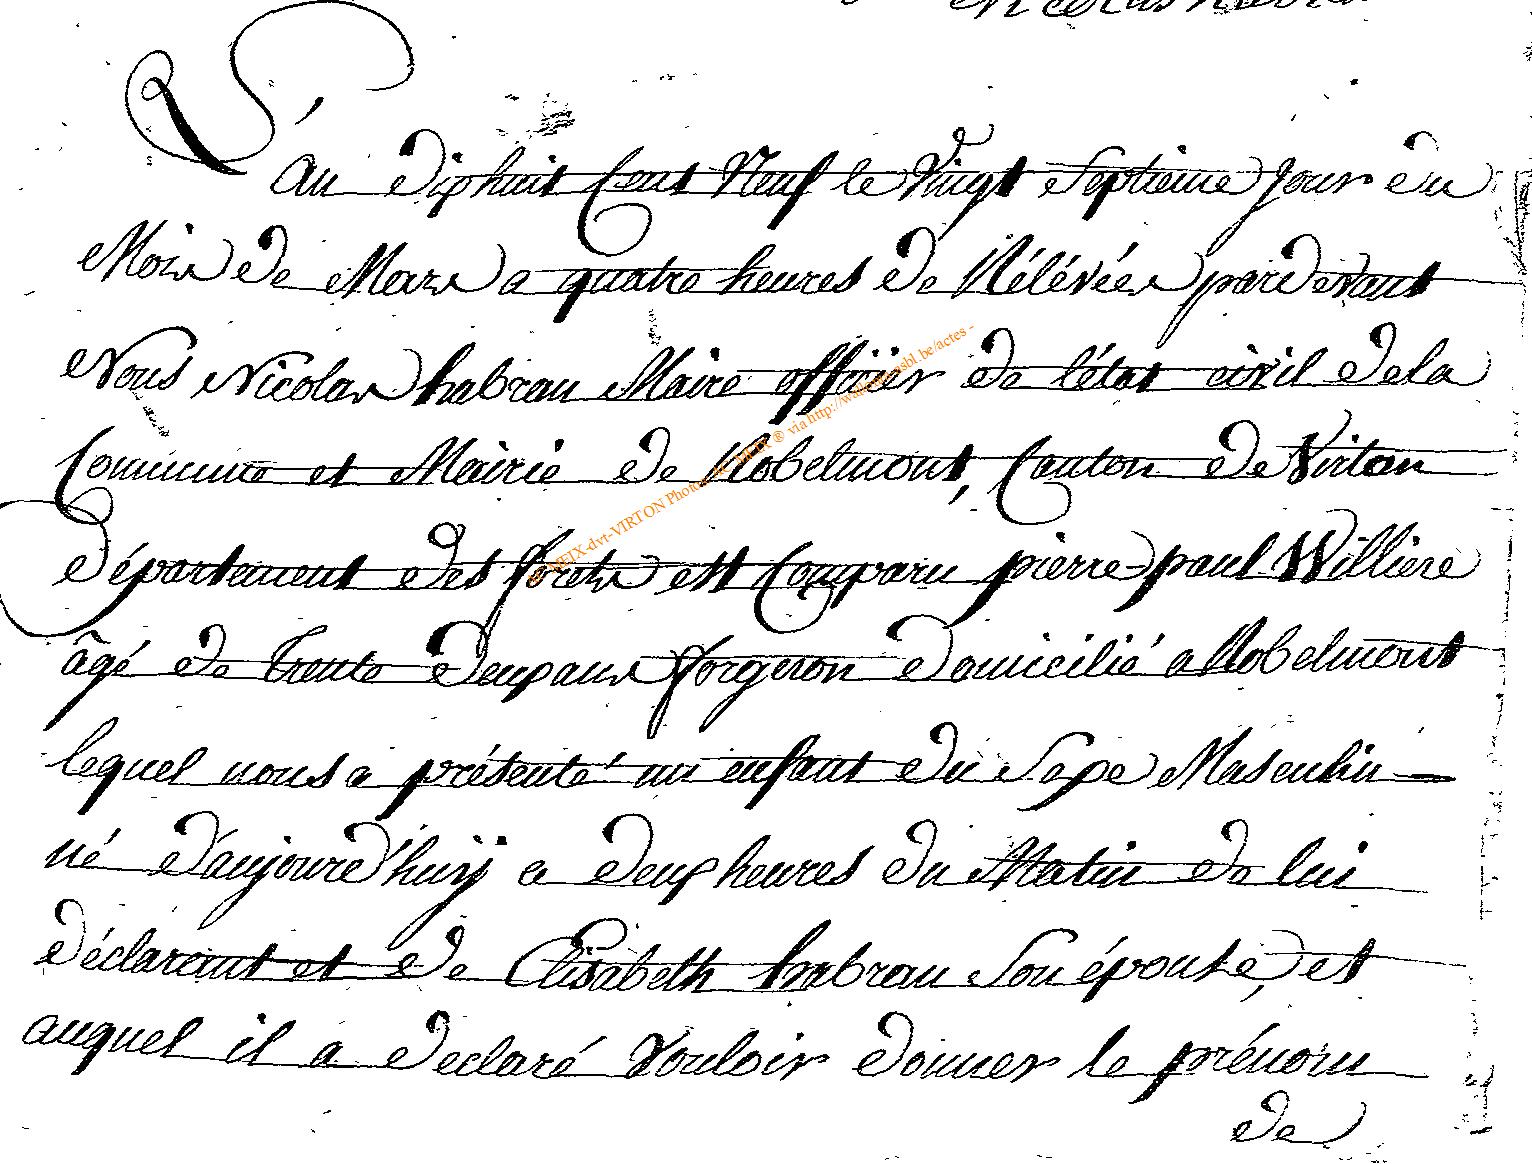 L'an dixhuit Cent Neuf le Vingt Septieme jour du
Mois de Mars a quatre heures de Rélévée pardevant
Nous Nicolas habrau Maire officier de l'état civil dela
Commune et Mairie de Robelmont, Canton de Virton
département des forets est Comparu pierre paul Williere
âgé de Trente deux ans forgeron domicilié a Robelmont
lequel nous a présenté un enfant du Sexe Masculin
né d'aujourd'huij a deux heures du Matin de lui
déclarant et de Elisabeth habrau Son épouse, et
auquel il a declaré Vouloir donner le prénom
de